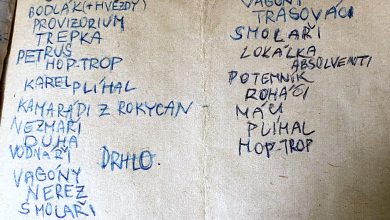 BODLÁK (+ HVĚZDY)
PROVIZORIUM
TŘEPKA
PETRUS
HOP-TROP
KAREL PLÍHAL
KAMARÁDI Z ROKYCAN
NEZMAŘI
DUHA
VODNÁŘI
DRHLO.
VAGÓNY
NEREZ
SMOLAŘI
VAGÓNY
TRASOVÁCI
SMOLAŘI
LOKÁLKA
ABSOLVENTI
POTEMNÍK
ROHÁČI
MÁCI
PLÍHAL
HOP-TROP